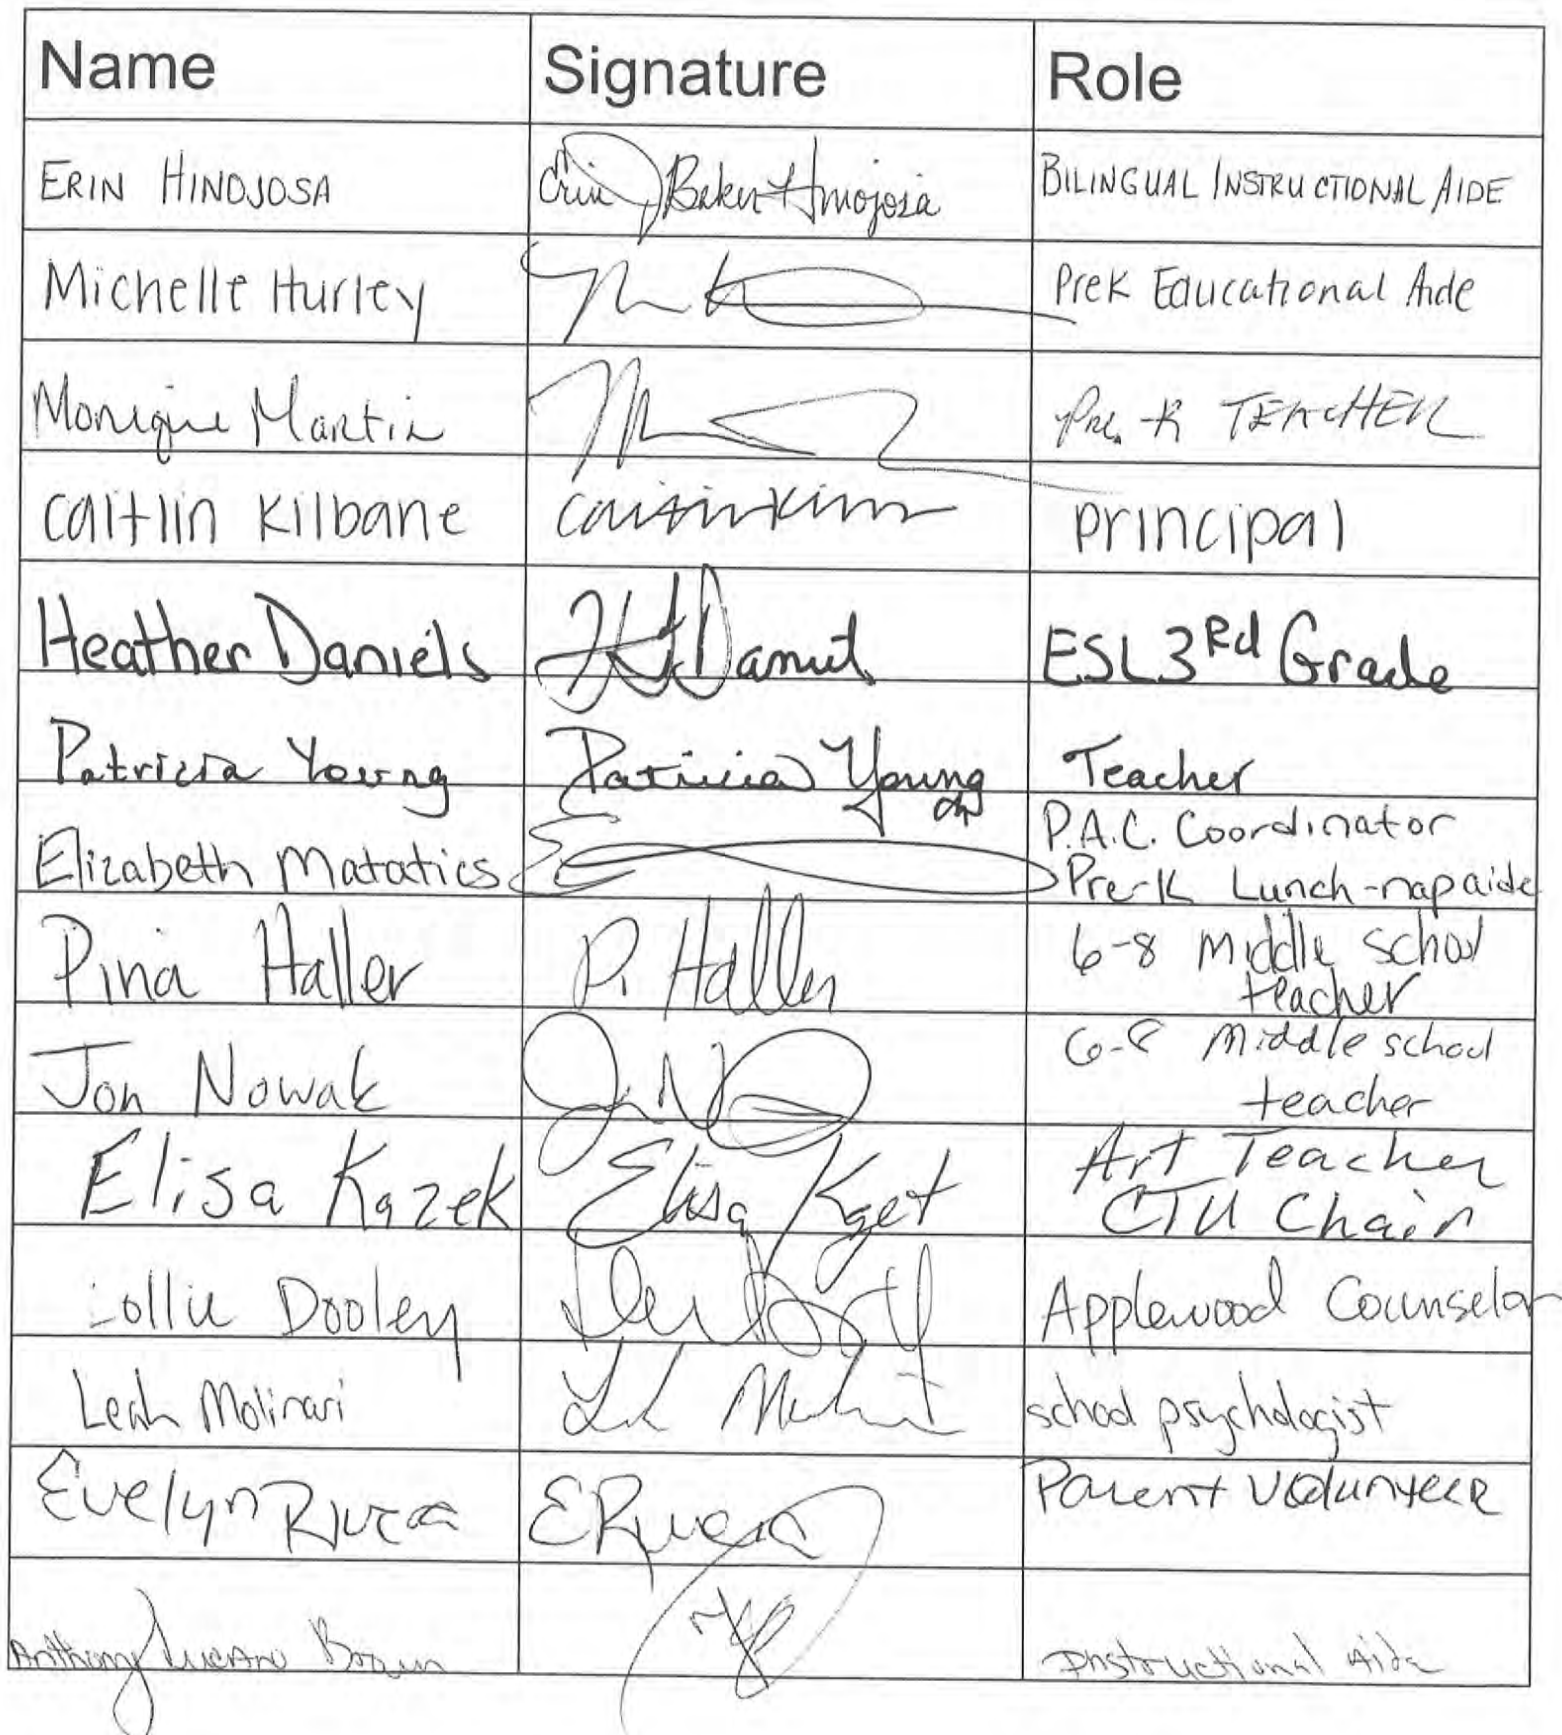 Name Signature Role
ERIN HINOJOSA Erin Baker Hinojosa BILINGUAL INSTRUCTIONAL AIDE
Michelle Hurley PreK Educational Aide
Monique Martin Pre-K TEACHER
Caitlin Kilbane principal
Heather Daniels ESL 3Rd Grade
Patricia Young Patricia Young Teacher
P.A.C. Coordinator
Elizabeth Matatics Pre-K Lunch-nap aide
Pina Haller P. Haller 6-8 Middle school
teacher
Jon Nowak 6-8 Middle school
teacher
Elisa Kazek Elisa Art Teacher
CTU Chair
Dooley Applewood Counselor
Leah Molinari school psychologist
Evelyn Rivera E Rivera Parent Volunteer
Anthony Instructional Aide